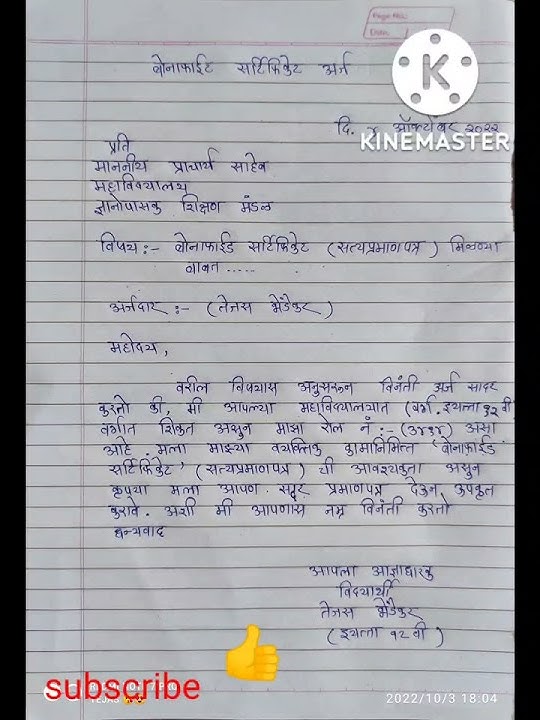 Page No.
Date
बोनाफाईट सर्टिफिकेट अर्ज
K
KINEMASTER
दि. ४ ऑक्टोबर २०२२
प्रति
माननीय प्राचार्य साहेब
महाविद्यालय
ज्ञानोपासक शिक्षण मंडळ
विषय :- बोनाफाईड सर्टिफिकेट (सत्यप्रमाणपत्र) मिळण्या
बाबत .....
अर्जदार :- (तेजस भेंडेकर)
महोदय,
वरील विषयास अनुसरून विनंती अर्ज सादर
करतो की, मी आपल्या महाविद्यालयात (वर्ग. इयत्ता १२ वी
वर्गात शिकत असुन माझा रोल नं :- (३४१४) असा
आहे. मला माझ्या वयक्तिक कामानिमित्त 'बोनाफाईड
सर्टिफिकेट' (सत्यप्रमाणपत्र) ची आवश्यकता असुन
कृपया मला आपण सदर प्रमाणपत्र देऊन उपकृत
करावे. अशी मी आपणास नम्र विनंती करतो
धन्यवाद
आपला आज्ञाधारक
विद्यार्थी
तेजस भेंडेकर
(इयत्ता १२ वी)
subscribe
TEJAS
2022/10/3 18:04